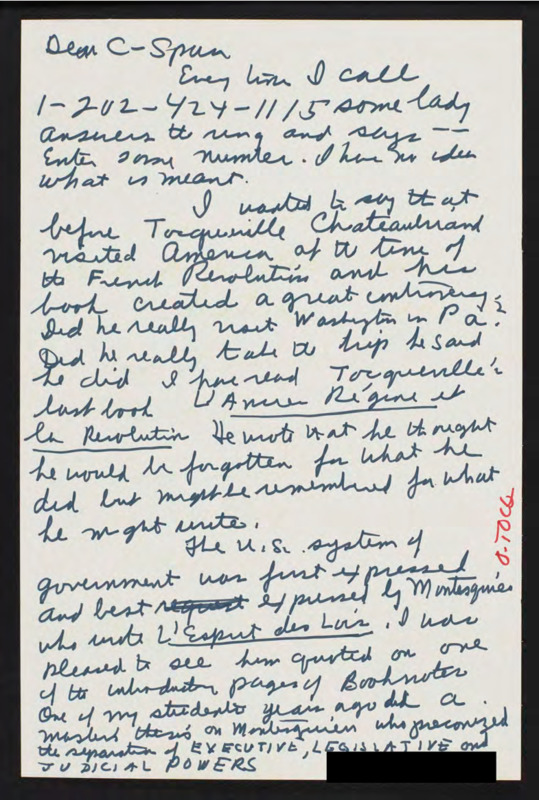 Dear C-Span
Every time I call
1-202-424-1115 some lady
answers the ring and says --
Enter some number. I have no idea
what is meant.
I wanted to say that
before Tocqueville Chateaubriand
visited America at the time of
the French Revolution and his
book created a great controversy:
Did he really visit Washington in Pa.?
Did he really take the trip he said
he did I have read Tocqueville's
last book L'Ancien Régime et
la Revolution He wrote that he thought
he would be forgotten for what he
did but might be remembered for what
he might write.
The U.S. system of
government was first expressed
and best expressed by Montesquieu
who wrote L'Esprit des Lois. I was
pleased to see him quoted on one
of the introductory pages of Booknotes
One of my students years ago did a
masters thesis on Montesquieu who preconized
the separation of EXECUTIVE, LEGISLATIVE and
JUDICIAL POWERS